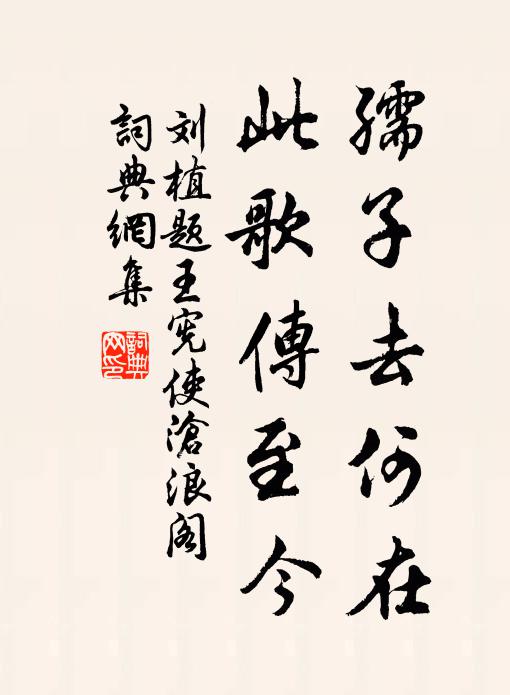 孺子去何在
此歌傳至今
刘植题王宪使滄浪阁
詞典網集
詞典網印